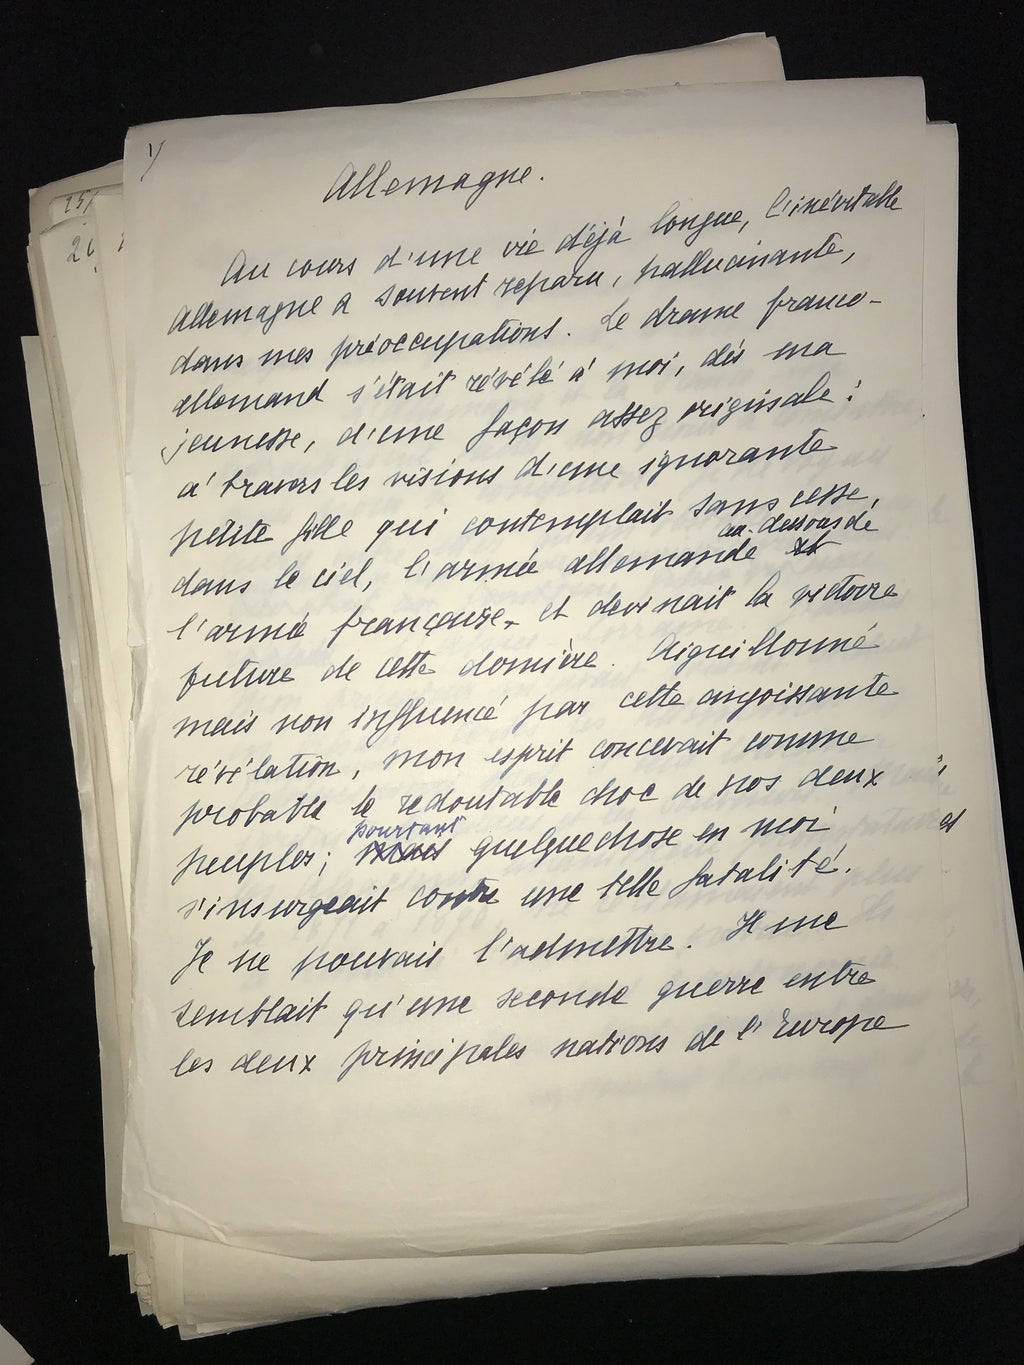 1/
Allemagne.
Au cours d'une vie déjà longue, l'inévitable
Allemagne a souvent reparu, hallucinante,
dans mes préoccupations. Le drame franco-
allemand s'était révélé à moi, dès ma
jeunesse, d'une façon assez originale :
à travers les visions d'une ignorante
petite fille qui contemplait sans cesse,
au-dessous de
dans le ciel, l'armée allemande et
l'armée française, et devinait la victoire
future de cette dernière. Aiguillonné
mais non influencé par cette angoissante
révélation, mon esprit concevait comme
probable le redoutable choc de nos deux
pourtant
peuples ; mais quelque chose en moi
s'insurgeait contre une telle fatalité.
Je ne pouvais l'admettre. Il me
semblait qu'une seconde guerre entre
les deux principales nations de l'Europe
25/